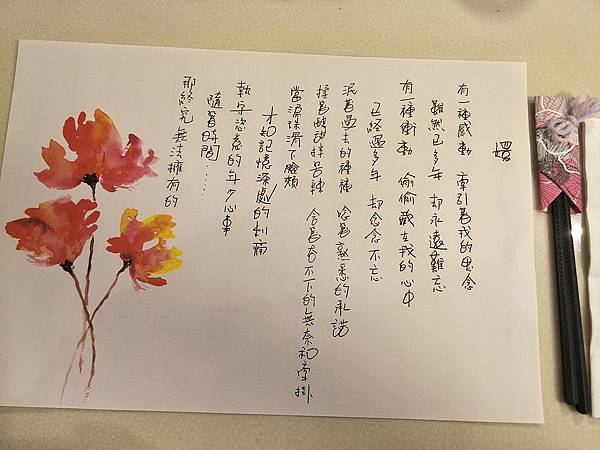 有一種感動 牽引著我的思念
雖然已多年 卻永遠難忘
有一種衝動 偷偷藏在我的心中
已經過多年 卻念念不忘
著過去的種種 唸著熟悉的承諾
揉著酸甜拌苦辣 含著吞不下的無奈和牽掛
當淚珠滑下臉頰
才知記憶深處的刺痛
執守恣意的年少心事
隨著時間......
那終究無法擁有的